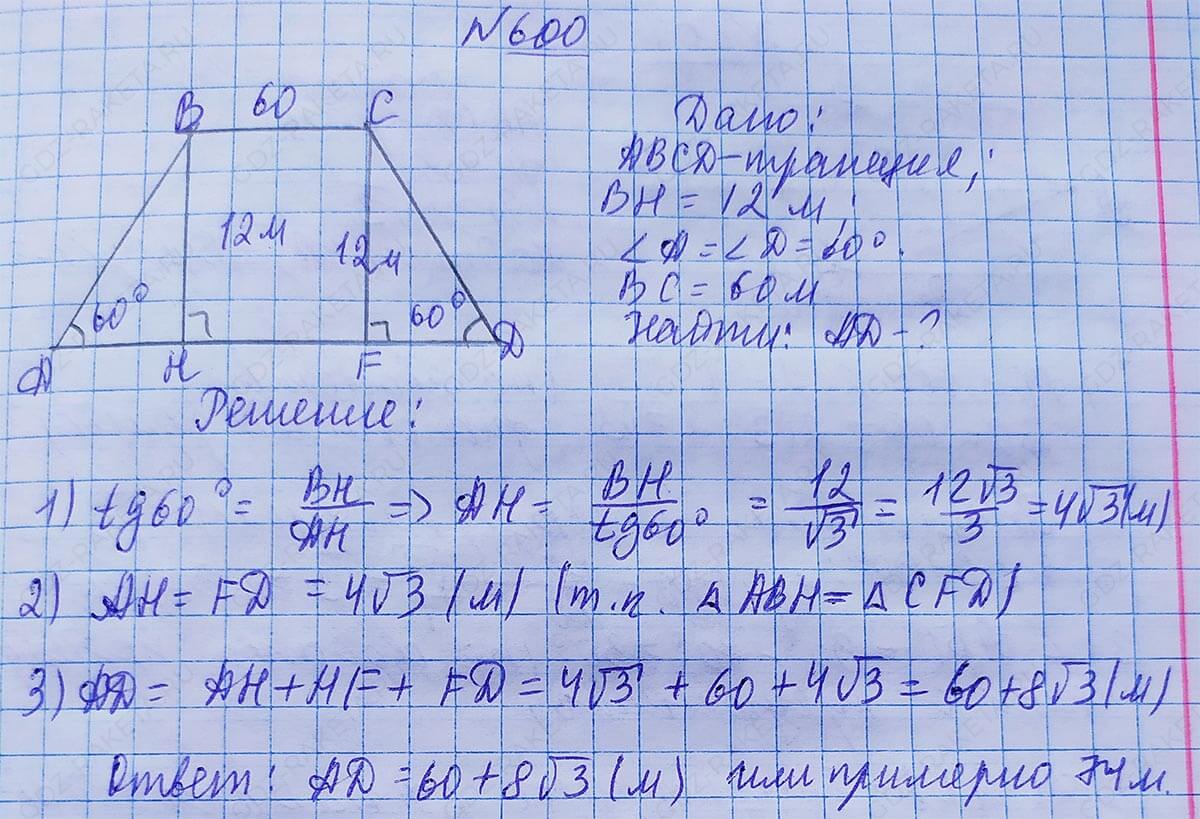 №600
B 60 C
12м 12м
60° 60°
A H F D
Дано:
ABCD-трапеция;
BH = 12 м;
∠A = ∠D = 60°.
BC = 60 м
Найти: AD - ?
Решение:
1) tg60° = BH/AH => AH = BH/tg60° = 12/√3 = 12√3/3 = 4√3 (м)
2) AH = FD = 4√3 (м) (т.к. △ABH = △CFD)
3) AD = AH + HF + FD = 4√3 + 60 + 4√3 = 60 + 8√3 (м)
Ответ: AD = 60 + 8√3 (м) или примерно 74 м.